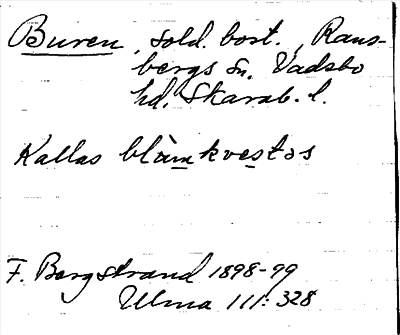 Buren, sold. bost., Rans-
bergs sn. Vadsbo
hd, Skarab. l.
Kallas blàmkvestəs
F. Bergstrand 1898-99
Ulma 111: 328